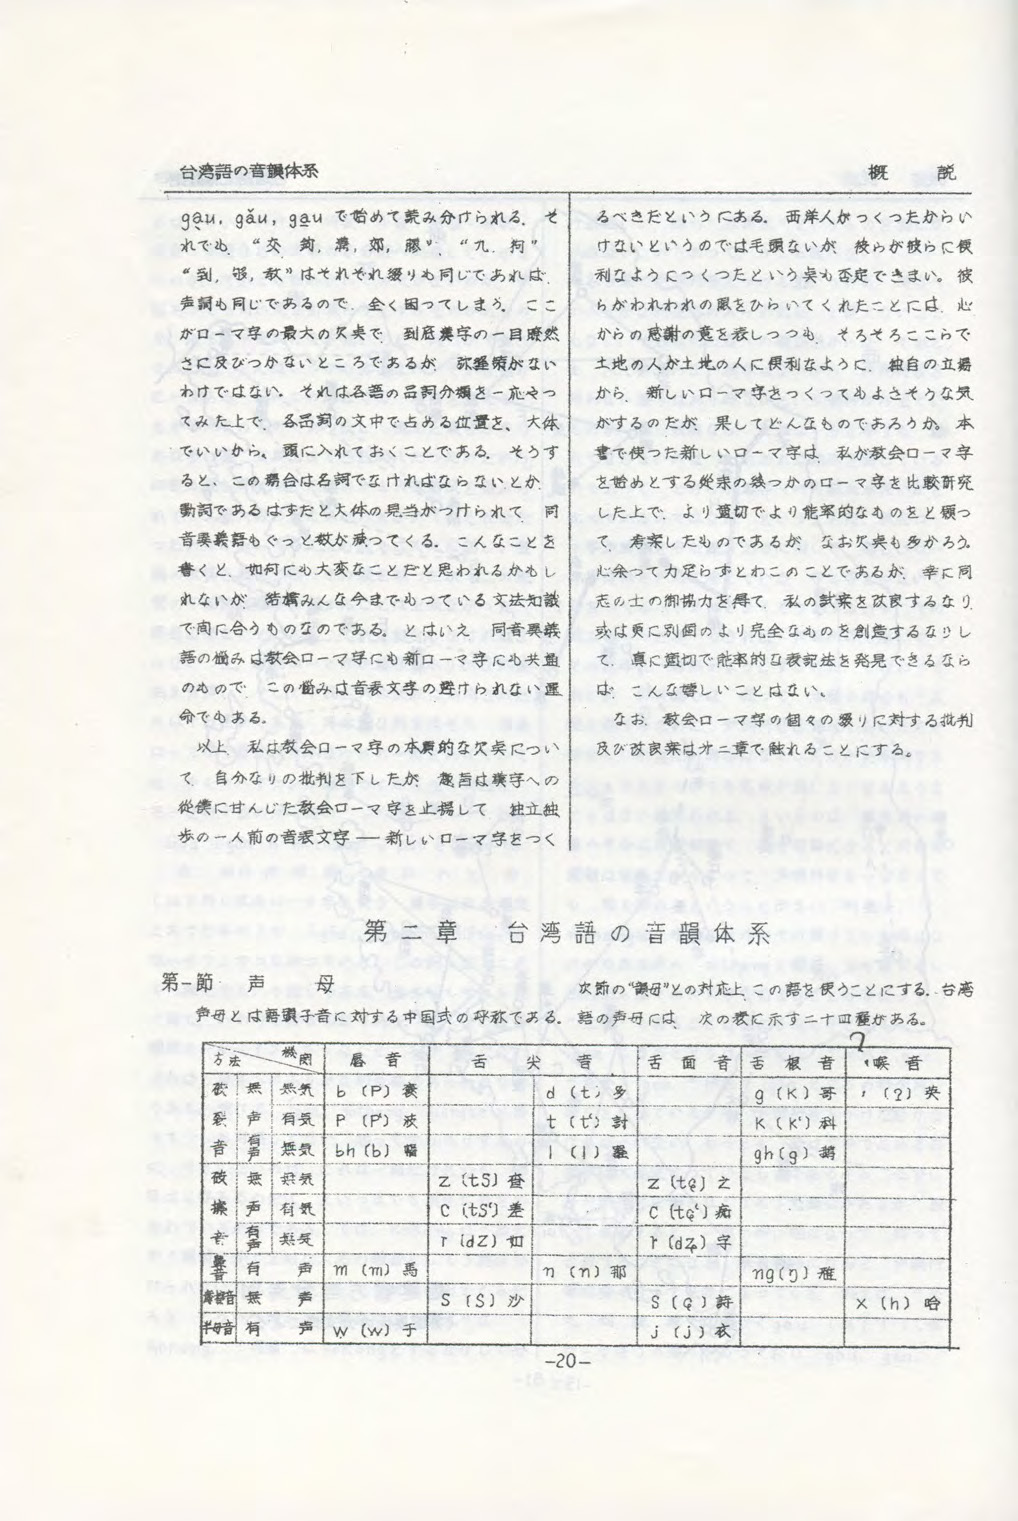 台湾語の音韻体系
概　説
gạu, gău, ga̲u で始めて読み分けられる。そ
れでも、“交, 鉤, 溝, 郊, 膠”、“九, 狗”
“到, 够, 教”はそれぞれ綴りも同じであれば、
声調も同じであるので、全く困ってしまう。ここ
がローマ字の最大の欠点で、到底漢字の一目瞭然
さに及びつかないところであるが、訳読領がない
わけではない。それは各語の品詞分類を一応やっ
てみた上で、各品詞の文中で占める位置を、大体
でいいから、頭に入れておくことである。そうす
ると、この場合は名詞でなければならないとか、
動詞であるはずだと大体の見当がつけられて、同
音異義語もぐっと数が減ってくる。こんなことを
書くと、如何にも大変なことだと思われるかもし
れないが、結構みんな今までもっている文法知識
で間に合うものなのである。とはいえ、同音異義
語の悩みは教会ローマ字にも新ローマ字にも共通
のもので、この悩みは音表文字の避けられない運
命でもある。
以上、私は教会ローマ字の本質的な欠点につい
て、自分なりの批判を下したが、趣旨は漢字への
従僕に甘んじた教会ローマ字を止揚して、独立独
歩の一人前の音表文字——新しいローマ字をつく
るべきだというにある。西洋人がつくったからい
けないというのでは毛頭ないが、彼らが彼らに便
利なようにつくったという点も否定できまい。彼
らがわれわれの眼をひらいてくれたことには、心
からの感謝の意を表しつつも、そろそろここらで
土地の人が土地の人に便利なように、独自の立場
から、新しいローマ字をつくってもよさそうな気
がするのだが、果してどんなものであろうか。本
書で使った新しいローマ字は、私が教会ローマ字
を始めとする従来の幾つかのローマ字を比較研究
した上で、より適切でより能率的なものをと願っ
て、考案したものであるが、なお欠点も多かろう。
心余って力足らずとわこのことであるが、幸に同
志の士の御協力を得て、私の試案を改良するなり、
或は更に別個のより完全なものを創造するなりし
て、真に適切で能率的な表記法を発見できるなら
ば、こんな嬉しいことはない。
なお、教会ローマ字の個々の綴りに対する批判
及び改良案は才二章で触れることにする。
第二章　台湾語の音韻体系
第一節　声　母　次節の“韻母”との対応上、この語を使うことにする。台湾
声母とは語頭子音に対する中国式の呼称である。語の声母には、次の表に示す二十四種がある。
?
方法 機関 唇音 舌尖音 舌面音 舌根音 喉音
破 無 無気 b (P) 褒 d (t) 多 g (K) 哥 ' (ʔ) 英
裂 声 有気 P (P‘) 波 t (t‘) 討 K (K‘) 科
音 有声 無気 bh (b) 帽 l (l) 羅 gh (g) 鵝
破 無 無気 Z (tS) 查 Z (tɕ) 之
擦 声 有気 C (tS‘) 差 C (tɕ‘) 痴
音 有声 無気 r (dZ) 如 r (dʑ) 字
鼻音 有 声 m (m) 馬 n (n) 那 ng (ŋ) 雅
摩擦音 無 声 S (S) 沙 S (ɕ) 詩 X (h) 哈
半母音 有 声 W (w) 于 j (j) 衣
—20—